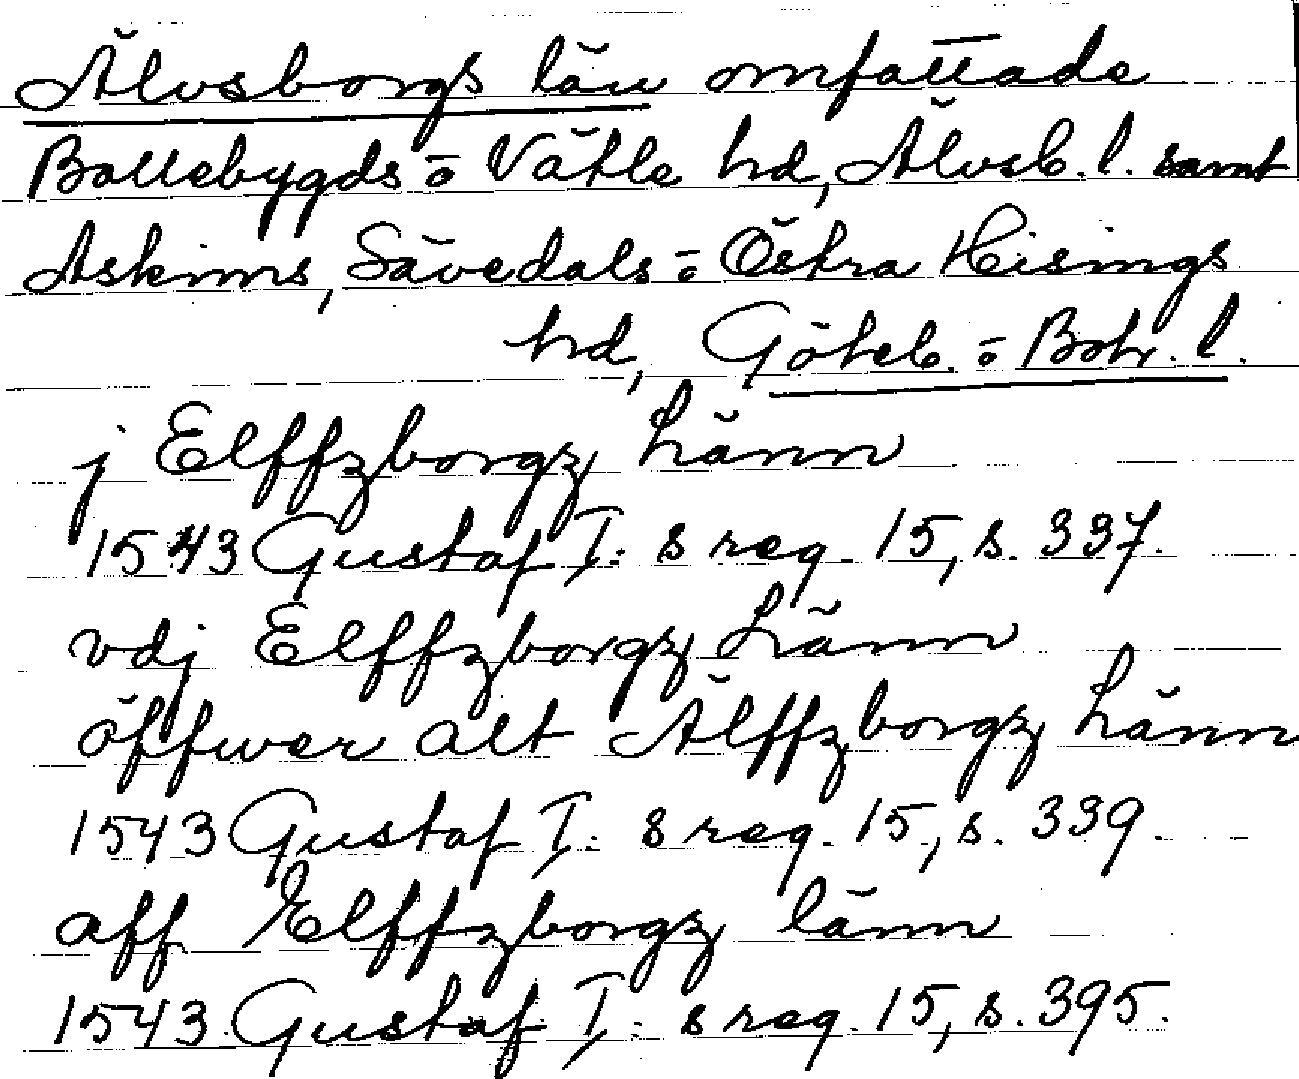 Älvsborgs län omfattade
Bollebygds o Vätle hd, Älvsb. l. samt
Askims, Sävedals o Östra Hisings
hd, Göteb. o Boh. l.
j Elffzborgz Länn
1543 Gustaf I:s reg. 15, s. 337.
vdj Elffzborgz Länn
öffwer alt Älffzborgz Länn
1543 Gustaf I:s reg. 15, s. 339.
aff Elffzborgz länn
1543 Gustaf I:s reg. 15, s. 395.